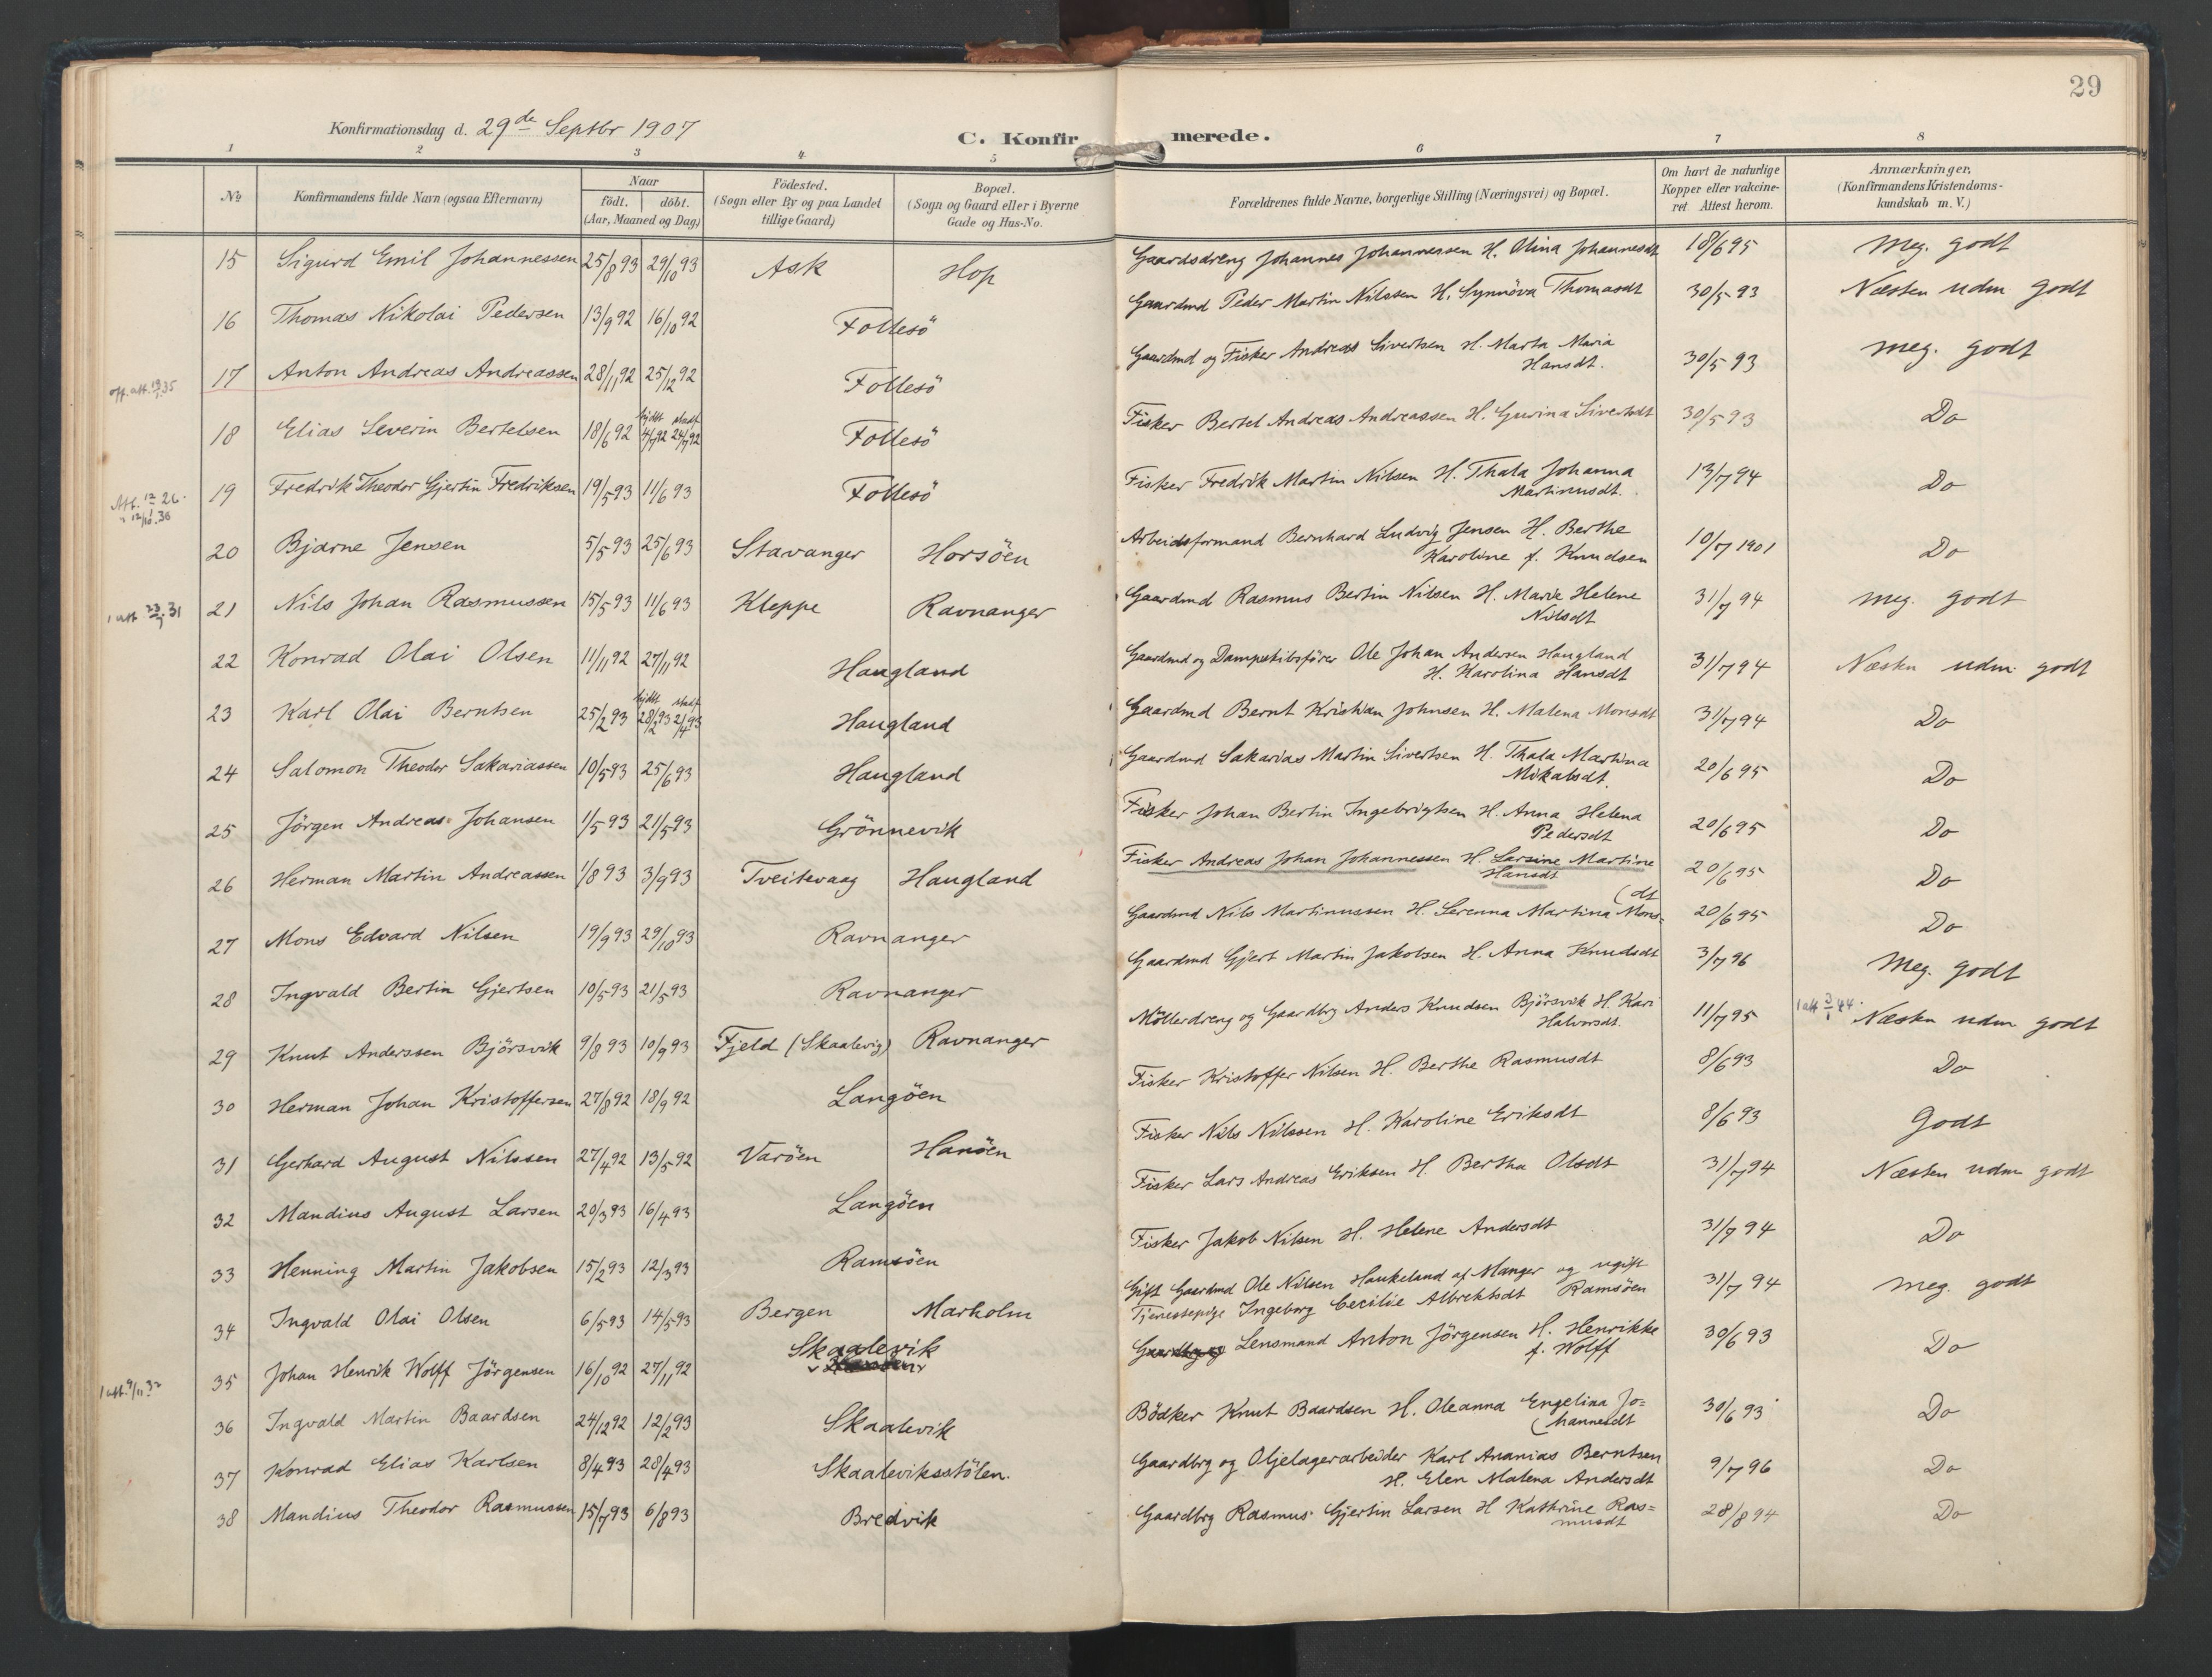 29
Konfirmationsdag d. 29de Septbr 1907
C. Konfirmerede.
1 2 3 4 5 6 7 8
№ Konfirmandens fulde Navn (ogsaa Efternavn) Naar født. døbt. (Aar, Maaned og Dag) Födested. (Sogn eller By og paa Landet tillige Gaard) Bopæl. (Sogn og Gaard eller i Byerne Gade og Hus-No. Forældrenes fulde Navne, borgerlige Stilling (Næringsvei) og Bopæl. Om havt de naturlige Kopper eller vakcineret. Attest herom. Anmærkninger, (Konfirmandens Kristendomskundskab m. V.)
15 Sigurd Emil Johannessen 25/8 93 29/10 93 Ask Hop Gaardsdreng Johannes Johannessen H. Olina Johannesdt 18/6 95 Meg. godt
16 Thomas Nikolai Pedersen 13/9 92 16/10 92 Follesö Gaardmd Peder Martin Nilssen H. Synnöva Thomasdt 30/5 93 Næsten udm godt
17 Anton Andreas Andreassen 28/11 92 25/12 92 Follesö Gaardmd og Fisker Andreas Sivertsen H. Marta Maria Hansdt. 30/5 93 Meg. godt
18 Elias Severin Bertelsen 18/6 92 hjdbt. 4/7 92 stadf. 24/7 92 Follesö Fisker Bertel Andreas Andreassen H. Gurina Sivertsdt 30/5 93 Do
19 Fredrik Theodor Gjertin Fredriksen 19/5 93 11/6 93 Follesö Fisker Fredrik Martin Nilsen H. Thala Johanna Martinusdt. 13/7 94 Do
20 Bjarne Jensen 5/5 93 25/6 93 Stavanger Horsöen Arbeidsformand Bernhard Ludvig Jensen H. Berthe Karoline f. Knudsen 10/7 1901 Do
1 att 23/1 31 21 Nils Johan Rasmussen 15/5 93 11/6 93 Kleppe Ravnanger Gaardmd Rasmus Bertin Nilsen H. Marie Helene Nilsdt 31/7 94 Meg. godt
22 Konrad Olai Olsen 11/11 92 27/11 92 Haugland Gaardmd og Dampskibsförer Ole Johan Andersen Haugland H. Karolina Hansdt 31/7 94 Næsten udm godt
23 Karl Olai Berntsen 25/2 93 hjdbt. 28/2 93 stadf 2/4 93 Haugland Gaardmd Bernt Kristian Johnsen H. Malena Monsdt 31/7 94 Do
24 Salomon Theodor Sakariassen 10/5 93 25/6 93 Haugland Gaardmd Sakarias Martin Sivertsen H. Thala Martina Mikalsdt. 20/6 95 Do
25 Jörgen Andreas Johansen 1/5 93 21/5 93 Grönnevik Fisker Johan Bertin Ingebrigtsen H. Anna Helena Pedersdt 20/6 95 Do
26 Herman Martin Andreassen 1/8 93 3/9 93 Tveitevaag Haugland Fisker Andreas Johan Johannessen H. Larsine Martine Hansdt 20/6 95 Do
27 Mons Edvard Nilsen 19/9 93 29/10 93 Ravnanger Gaardmd Nils Martinussen H. Serenna Martina Mons=(dt 20/6 95 Do
28 Ingvald Bertin Gjertsen 10/5 93 21/5 93 Ravnanger Gaardmd Gjert Martin Jakobsen H. Anna Knudsdt 3/7 96 Meg. godt
29 Knut Anderssen Björsvik 9/8 93 10/9 93 Fjeld (Skaalevig) Ravnanger Möllerdreng og Gaardbrg Anders Knudsen Björsvik H. Kari Halvorsdt. 11/7 95 1 att 3/1 44. Næsten udm godt
30 Herman Johan Kristoffersen 27/8 92 18/9 92 Langöen Fisker Kristoffer Nilsen H. Berthe Rasmusdt 8/6 93 Do
31 Gerhard August Nilssen 27/4 92 13/5 92 Varöen Hanöen Fisker Nils Nilssen H. Karoline Eriksdt 8/6 93 Godt
32 Mandius August Larsen 20/3 93 16/4 93 Langöen Fisker Lars Andreas Eriksen H. Bertha Olsdt 31/7 94 Næsten udm godt
33 Henning Martin Jakobsen 15/2 93 12/3 93 Ramsöen Fisker Jakob Nilsen H. Helene Andersdt 31/7 94 Do
34 Ingvald Olai Olsen 6/5 93 14/5 93 Bergen Marholm Gift Gaardmd Ole Nilsen Haukeland af Manger og ugift Tjenestepige Ingeborg Cecilie Albrektsdt Ramsöen 31/7 94 Meg. godt
1 att. 9/11 32 35 Johan Henrik Wolff Jörgensen 16/10 92 27/11 92 Skaalevik Lensmand Anton Jörgensen H. Henrikke f. Wolff 30/6 93 Do
36 Ingvald Martin Baardsen 24/12 92 12/2 93 Skaalevik Bödker Knut Baardsen H. Oleanna Engelina Jo=(hannesdt 30/6 93 Do
37 Konrad Elias Karlsen 8/4 93 28/4 93 Skaaleviksstölen. Gaardbrg og Oljelagerarbeider Karl Ananias Berntsen H. Elen Malena Andersdt 9/7 96 Do
38 Mandius Theodor Rasmussen 15/7 93 6/8 93 Bredvik Gaardbrg Rasmus Gjertin Larsen H Kathrine Ras=musdt 28/8 94 Do